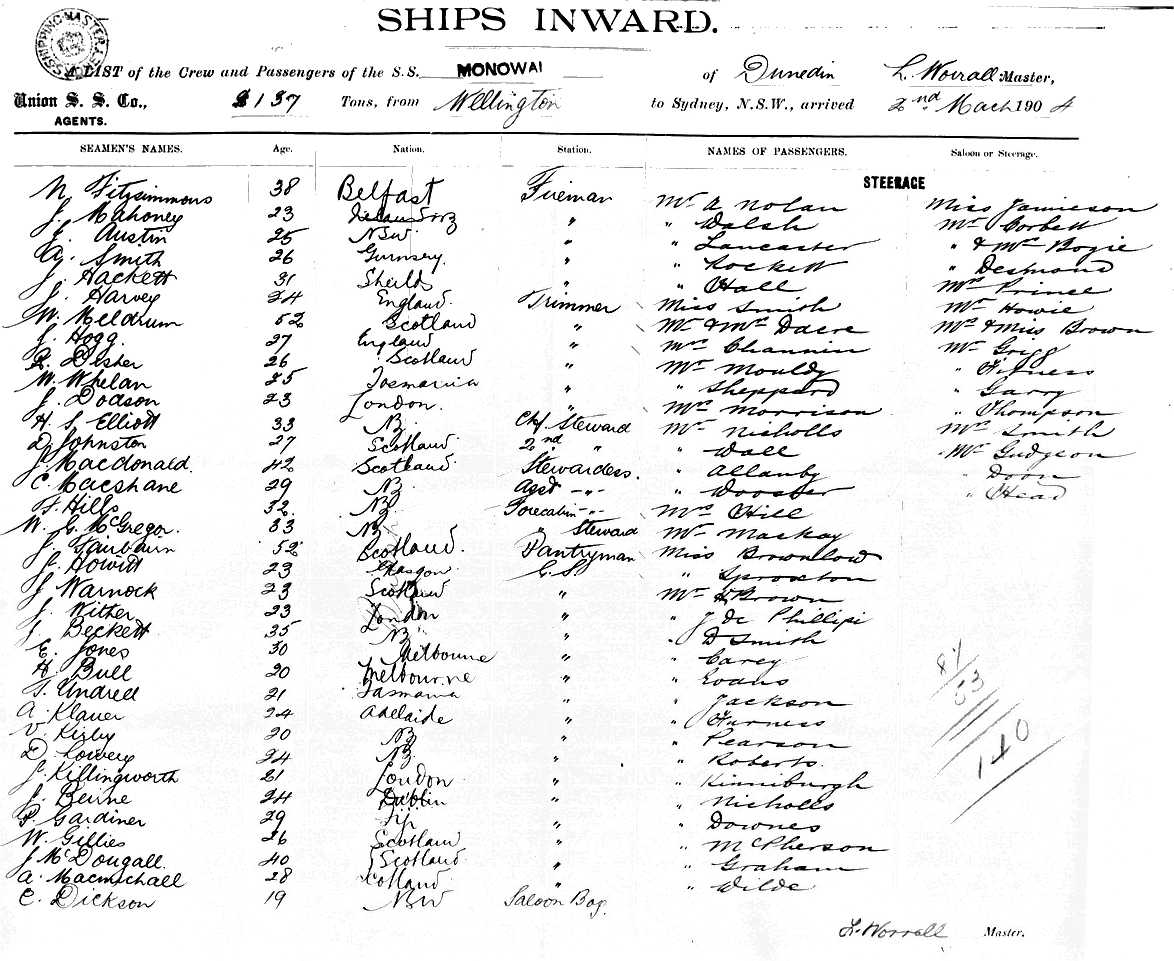 SHIPS INWARD.
A LIST of the Crew and Passengers of the S.S. MONOWAI of Dunedin L. Worrall Master,
Union S. S. Co., 137 Tons, from Wellington to Sydney, N.S.W., arrived 2nd Mach 1904
AGENTS.
SEAMEN'S NAMES. Age. Nation. Station. NAMES OF PASSENGERS. Saloon or Steerage.
STEERAGE
N Fitzsimmons 38 Belfast Fireman Mr A Nolan Miss Jamieson
J. Mahoney 23 " " Walsh Mr Corbett
E. Austin 25 NSW " " Lancaster " & Mrs Bogie
Ay. Smith 26 Gurnsey. " " Rockett " Desmond
J. Hackett 31 Sheilds " " Hall Mrs Prince
J. Harvey 24 England. Trimmer Miss Smith Mr Howie
W. Meldrum 52 Scotland " Mr & Mrs Dacre Mr & Miss Brown
J. Hogg. 27 England " Mrs Channin Mr Grigg
R. Disher 26 Scotland " Mr Mouldy " Fitness
W. Whelan 25 Tasmania " " Sheppard " Garry
J. Dodson 23 London. " Mrs Morrison " Thompson
H. S. Elliott 33 NZ. Chf Steward Mr Nicholls Mrs Smith
D Johnston 27 Scotland 2nd " " Wall Mr Gudgeon
J. Macdonald. 42 Scotland Stewardess. " Allanby " Doon
C. Macshane 29 NZ. Asst -"- " Wooster " Head
F. Hills 32. NZ. Forecabin -"- Mrs Hill
W. G. McGregor. 33 NZ " Steward Mr Mackay
J. Fairbairn 52 Scotland. Pantryman Miss Brownlow
J. Howitt 23 Glasgow. G. S. " Sproxton
J Warnock 23 Scotland " Mr H Brown
J. Wither 23 London " " J de Phillipi
J. Beckett 35 NZ " " D Smith
E. Jones 30 Melbourne " " Carey
H. Bull 20 Melbourne " " Evans
T. Undrell 21 Tasmania " " Jackson
A. Klauer 24 Adelaide " " Furness
V. Kirby 20 NZ " " Pearson
D. Lowey 24 NZ. " " Roberts.
J. Killingworth 21 London " " Kinniburgh
J. Beirne 24 Dublin " " Nicholls
P. Gardiner 29 Fiji " " Downes
W. Gillies 26 Scotland " " McPherson
J McDougall. 40 Scotland. " " Graham
A. Macmichall 28 Scotland. " " Wilde
C. Dickson 19 NSW Saloon Boy.
87/
53
140
L. Worrall Master.